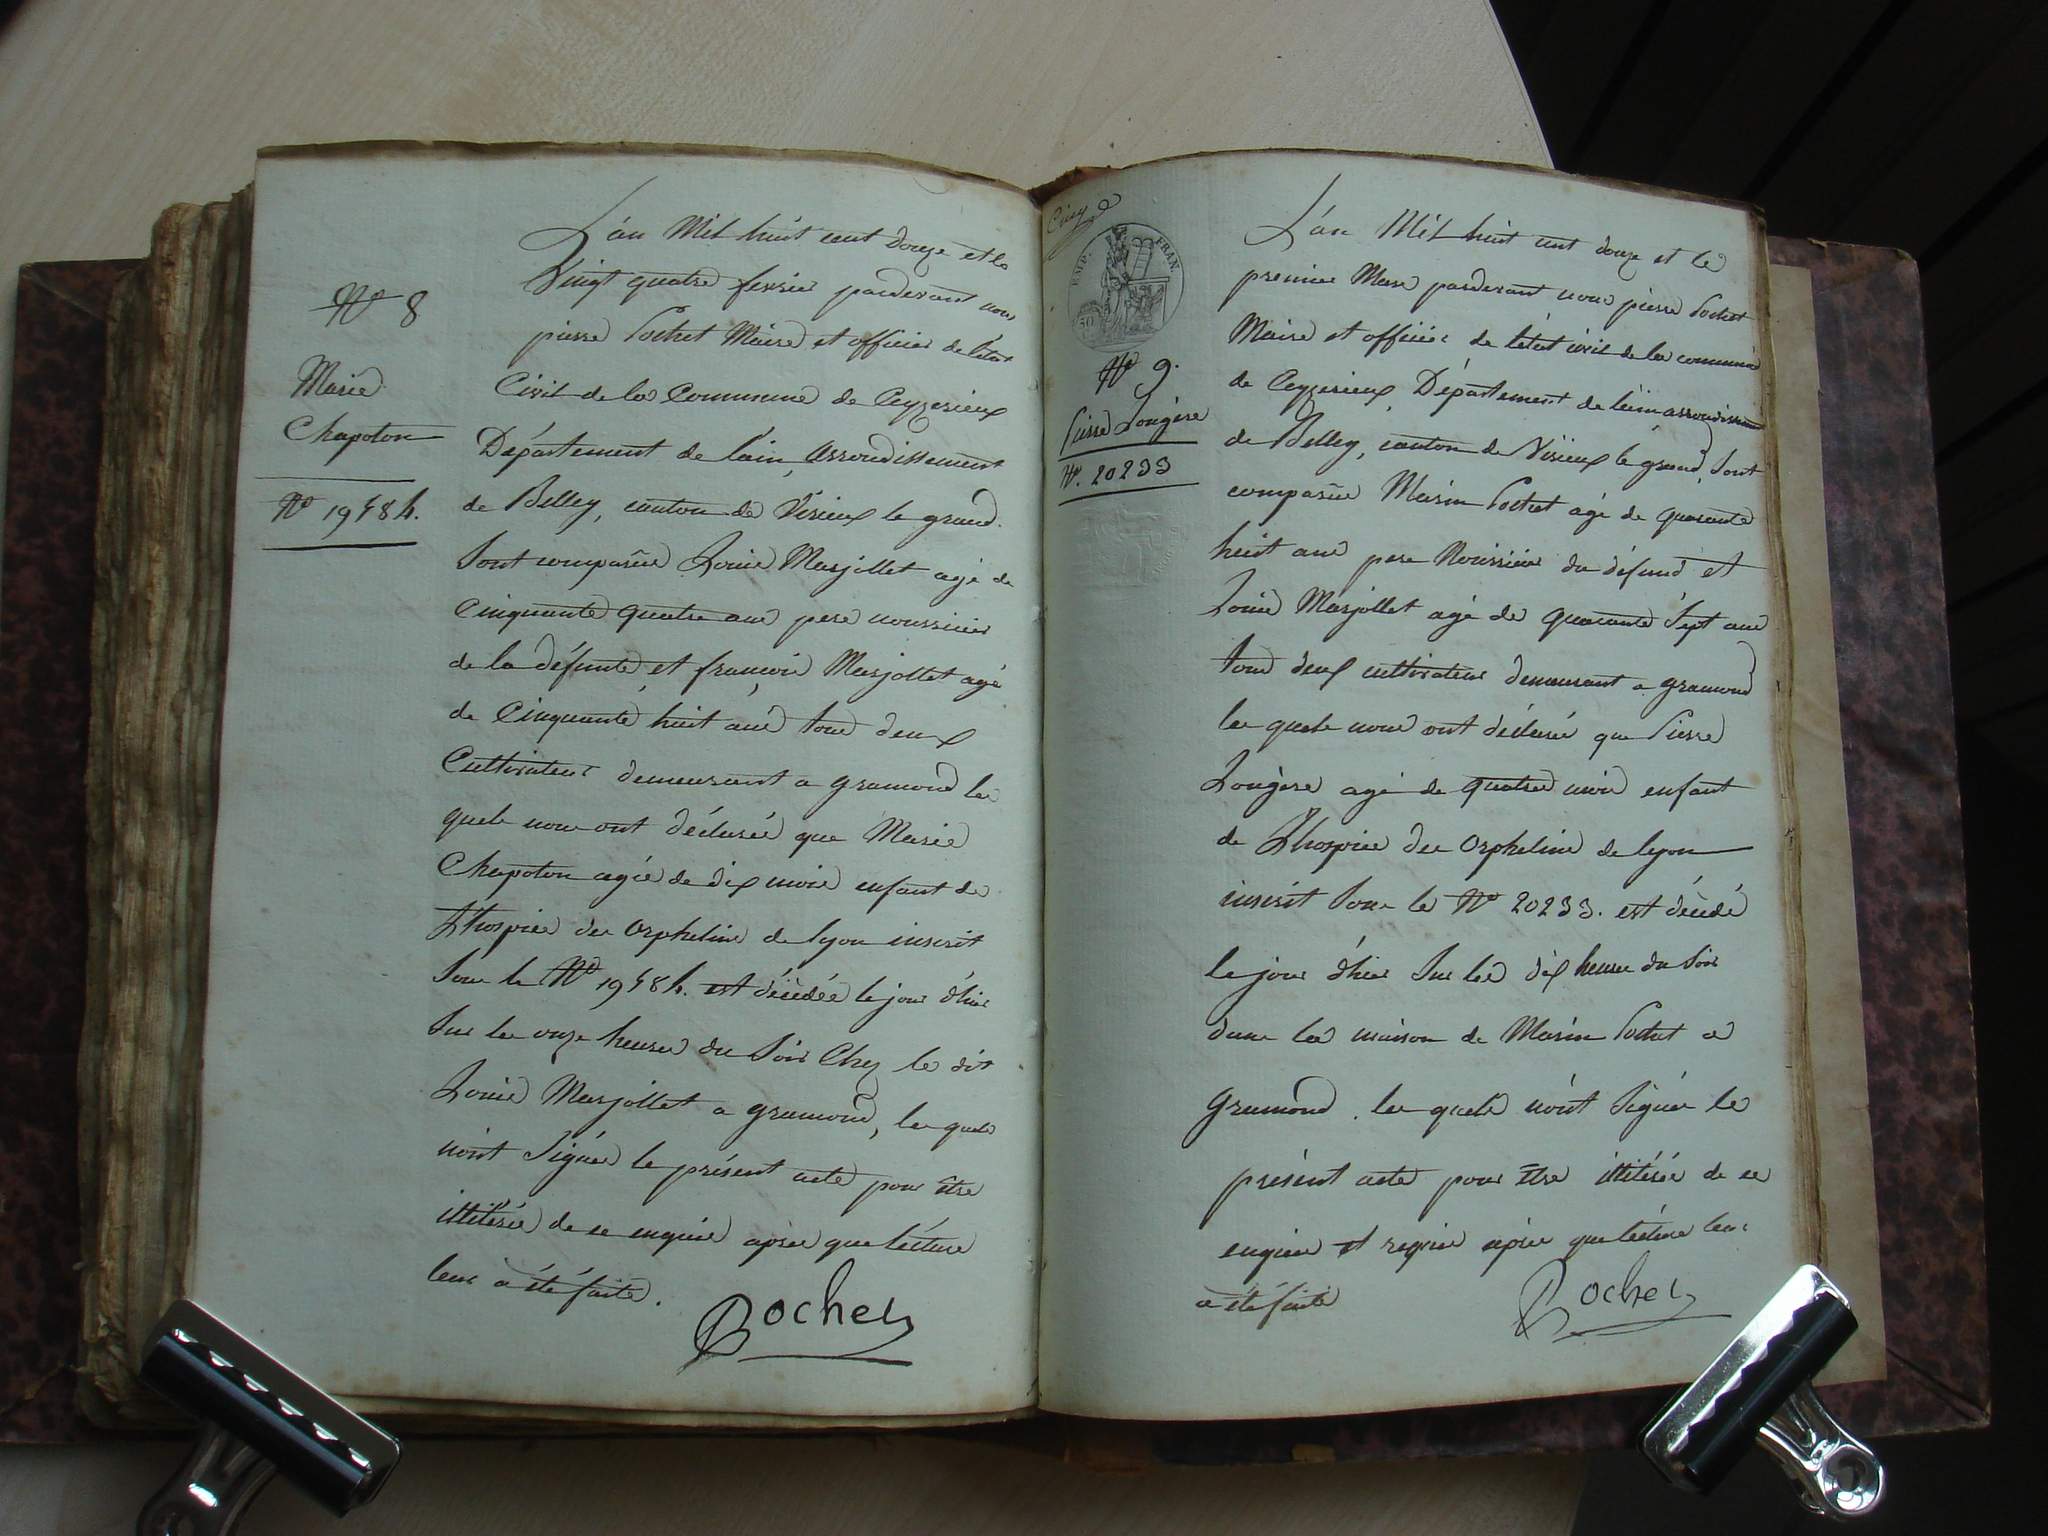 N° 8
Marie
Chapoton
N° 19484.
L'an Mil huit cent Douze et le
Vingt quatre fevrier pardevant nous
pierre Pochet Maire et officier de l'état
Civil de la Commune de Ceyzerieux
Département de l'ain, arrondissement
de Belley, canton de Virieux le grand.
Sont comparûs Louis Marjollet agé de
Cinquante quatre ans pere nourricier
de la défunte et françois Marjollet agé
de Cinquante huit ans tous deux
Cultivateurs demeurant a gramond les
quels nous ont déclarés que Marie
Chapoton agée de dix mois enfant de
L'hospice des orphelins de lyon inscrit
Sous le N° 19484. est décédée le jour d'hier
Sur les onze heures du Soir Chez le dit
Louis Marjollet a gramond, les quels
n'ont Signés le présent acte pour être
illitérés de ce enquis après que lécture
leur a été faite.
Pochet
Cinq
EMP. FRAN.
N° 9.
Pierre Longère
N°. 20233
L'an Mil huit cent douze et le
premier Mars pardevant nous pierre Pochet
Maire et officier de l'état civil de la commune
de Ceyzerieux Département de l'ain arrondissement
de Belley, canton de Virieux le grand, Sont
comparûs Marin Pochet agé de quarante
huit ans pere Nourricier du défund et
Louis Marjollet agé de quarante Sept ans
tous deux cultivateurs demeurant a gramond
les quels nous ont déclaré que Pierre
Longère agé de quatre mois enfant
de L'hospice des orphelins de lyon
inscrit Sous le N° 20233. est décédé
le jour d'hier Sur les dix heures du Soir
dans la maison de Marin Pochet a
Gramond. les quels n'ont Signés le
présent acte pour être illitérés de ce
enquis et requis après que lécture leur
a été faite
Pochet